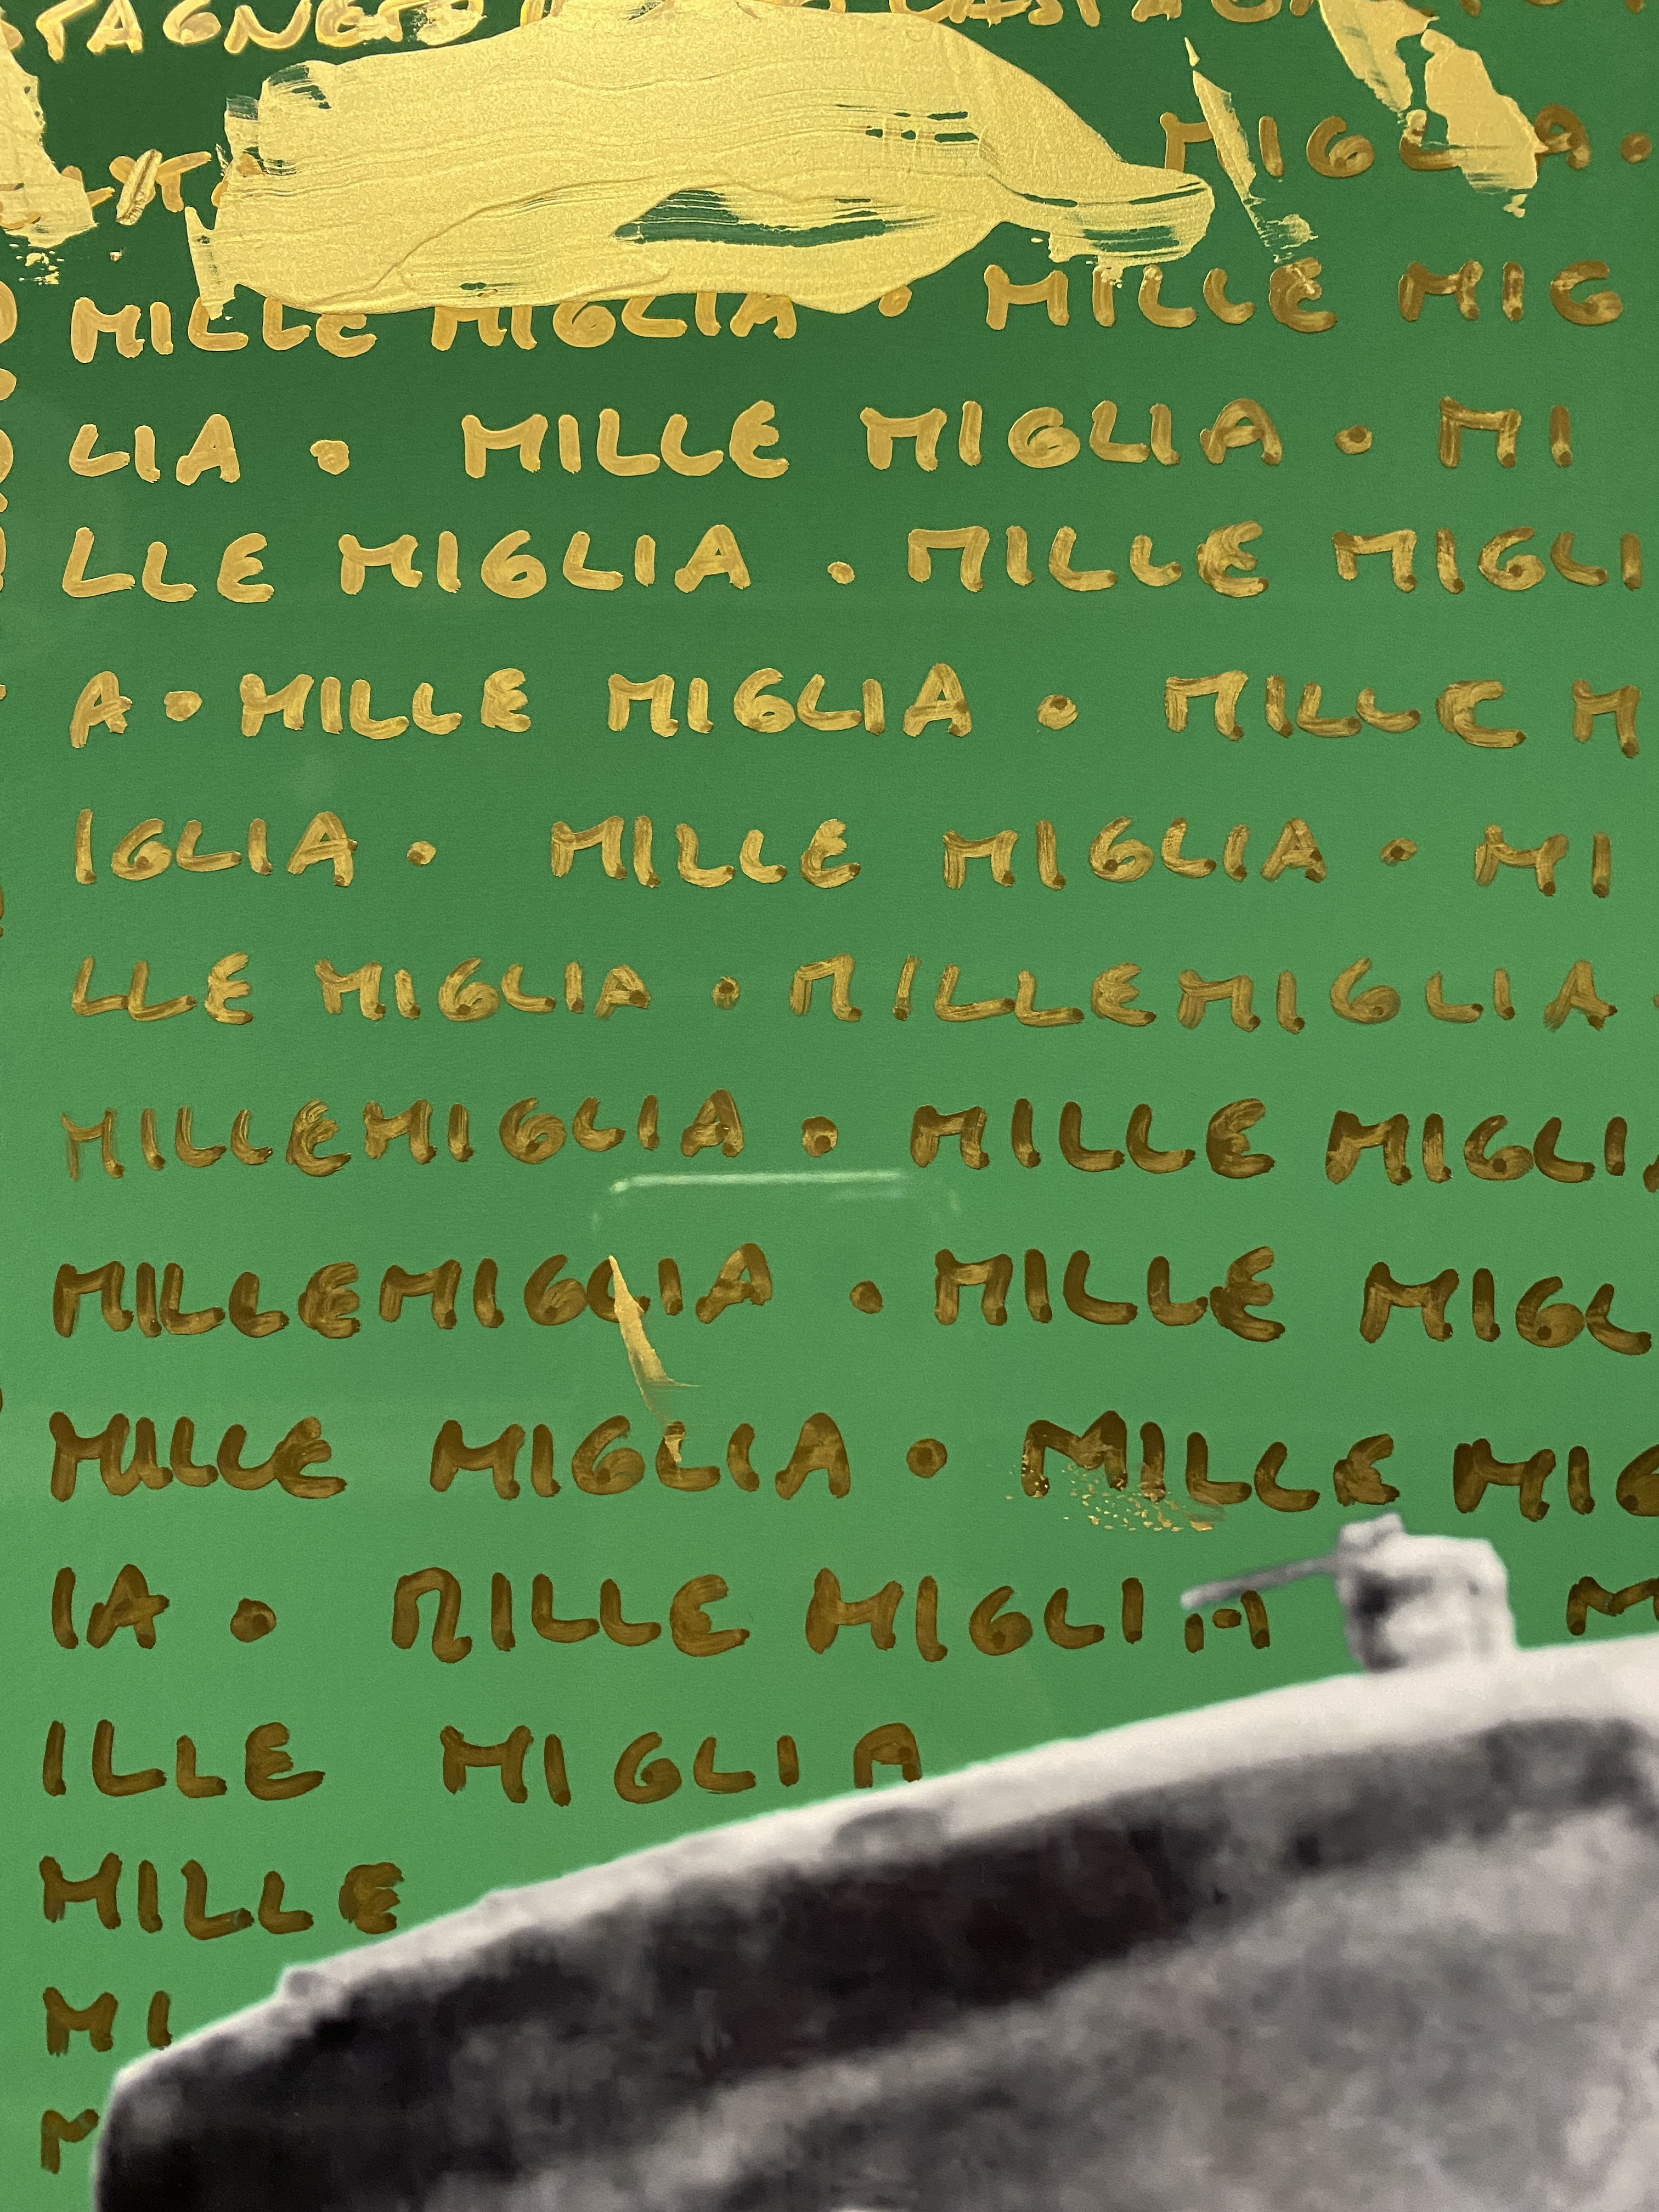 MIGLIA.
MILLE MIGLIA · MILLE MIG
LIA · MILLE MIGLIA · MI
LLE MIGLIA · MILLE MIGLI
A · MILLE MIGLIA · MILLE M
IGLIA · MILLE MIGLIA · MI
LLE MIGLIA · MILLEMIGLIA
MILLEMIGLIA · MILLE MIGLIA
MILLEMIGLIA · MILLE MIGL
MILLE MIGLIA · MILLE MIG
IA · MILLE MIGLIA M
ILLE MIGLIA
MILLE
MI
M